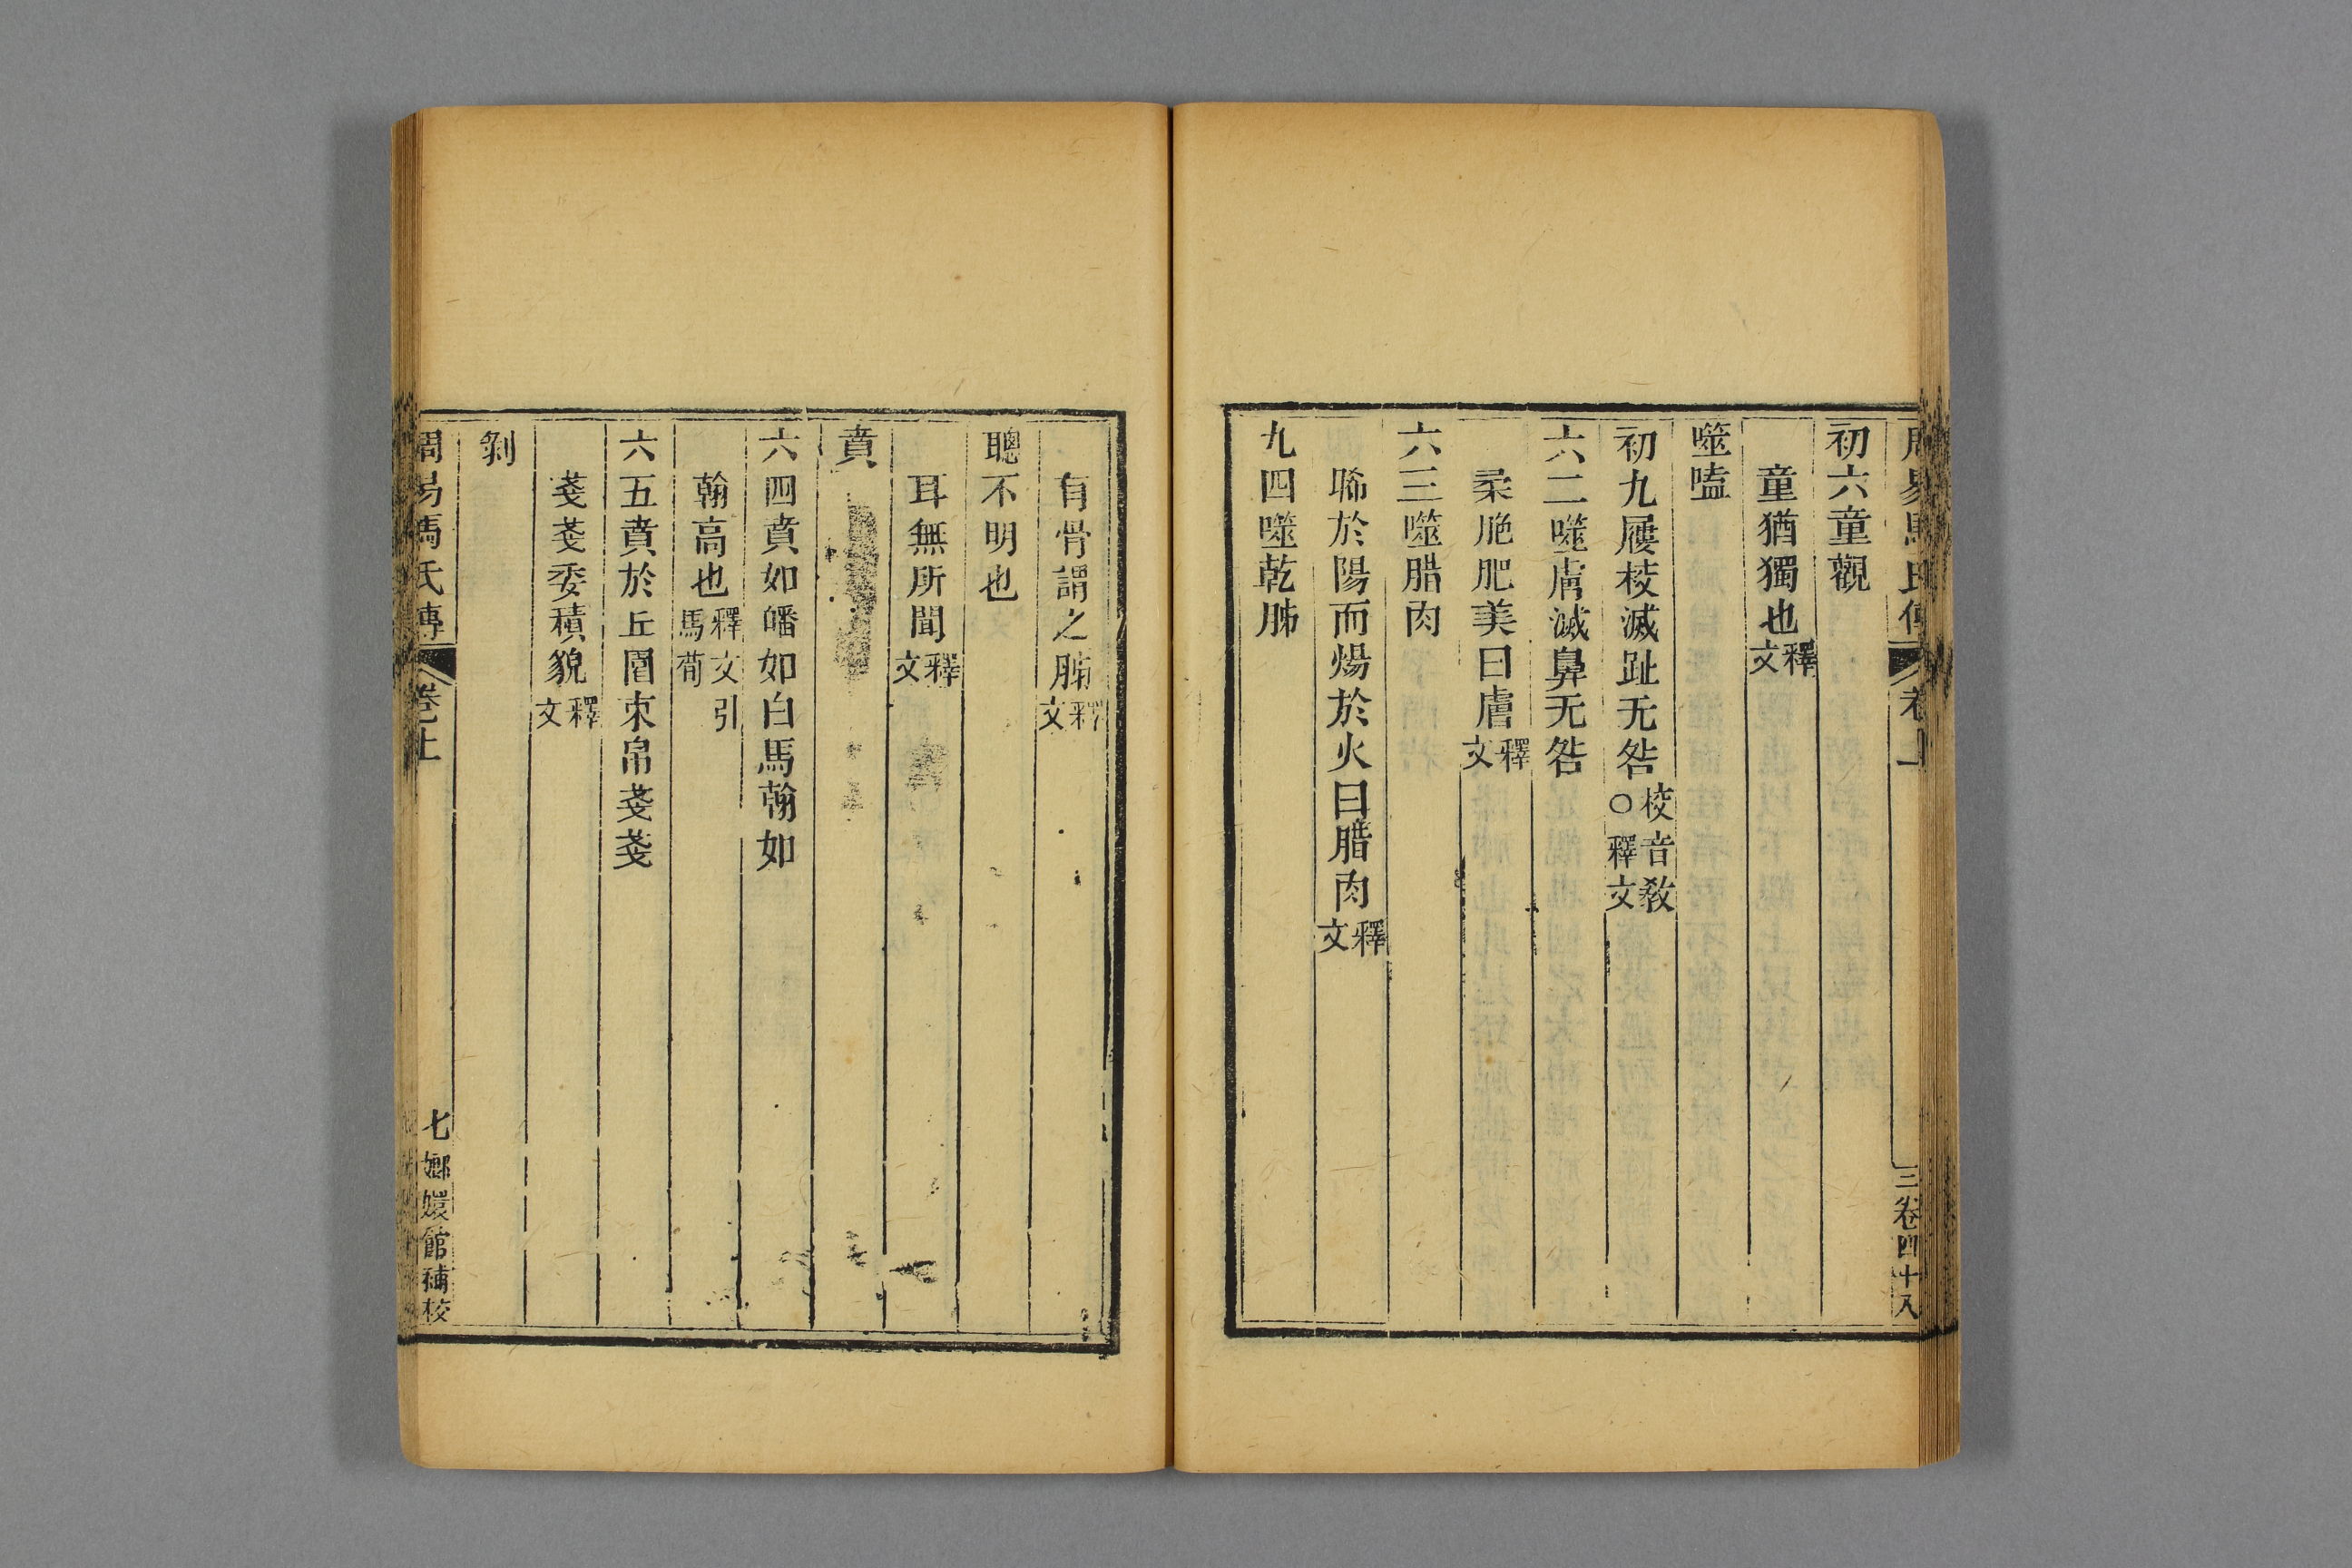 周易馬氏傳 卷上 三 卷四十八
初六童觀
童猶獨也釋文
噬嗑
初九屨校滅趾无咎校音敎○釋文
六二噬膚滅鼻无咎
柔脆肥美曰膚釋文
六三噬腊肉
晞於陽而煬於火曰腊肉釋文
九四噬乾胏
有骨謂之胏釋文
聰不明也
耳無所聞釋文
賁
六四賁如皤如白馬翰如
翰高也釋文引馬荀
六五賁於丘園束帛戔戔
戔戔委積貌釋文
剝
周易馬氏傳 卷上 七 嫏嬛館補校